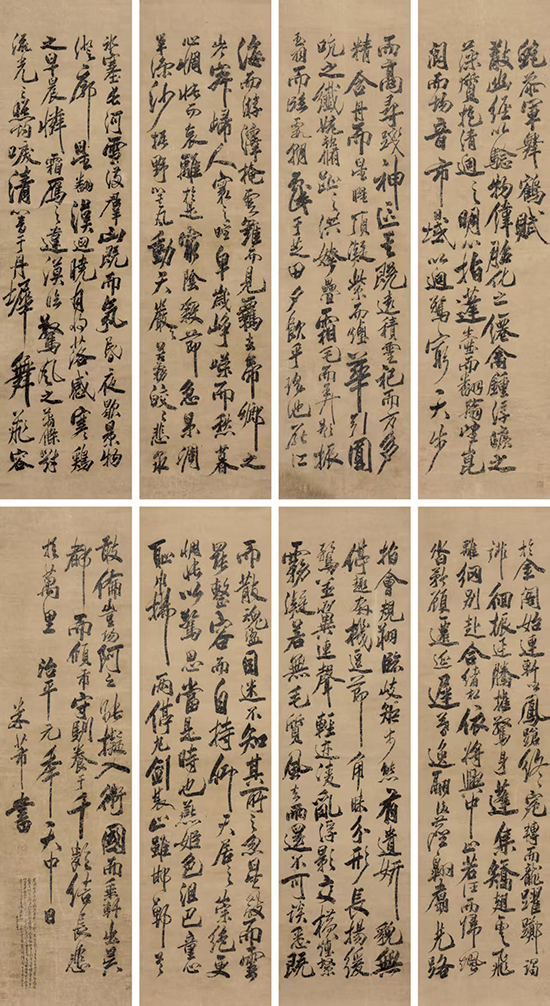 鮑參軍舞鶴賦
散幽經以驗物偉胎化之僊禽鍾浮曠之
藻質抱清迥之明心指蓬壺而翻翰望崑
閬而揚音帀日域以迴騖窮天步
而高尋踐神區其既遠積靈祀而方多
精含丹而星曜頂凝紫而煙華引圓
吭之纖婉頓脩趾之洪姱疊霜毛而弄影振
玉羽而臨霞朝戲于芝田夕飲乎瑤池厭江
海而游澤掩雲羅而見羈去帝鄉之
岑寂歸人寰之喧卑歲崢嶸而愁暮
心惆悵而哀離於是窮陰殺節急景凋
年涼沙振野箕風動天嚴嚴苦霧皎皎悲泉
冰塞長河雪滿群山既而氛昏夜歇景物
澄廓星翻漢迴曉月將落感寒鷄
之早晨憐霜鴈之違漠臨驚風之蕭條對
流光之照灼唳清響于丹墀舞飛容
於金閣始連軒以鳳蹌終宛轉而龍躍躑躅
徘徊振迅騰摧驚身蓬集矯翅雪飛
離綱別赴合緒相依將興中止若往而歸颯
沓矜顧遷延遲暮逸翮後塵翱翥先路
指會規翔臨岐矩步態有遺妍貌無
停趣奔機逗節角睞分形長揚緩
騖並翼連聲輕迹凌亂浮影交橫
霧凝若無毛質風去雨還不可談悉既
而散魂盪目迷不知其所之忽星散而雲
罷整容而自持仰天居之崇絕更
惆悵以驚思當是時也燕姬色沮巴童心
恥巾拂兩停丸劍雙止雖邯鄲其
敢倫豈陽阿之能擬入衛國而乘軒出吳
都而傾市守馴養于千齡結長悲
於萬里 治平元年天中日
米芾書